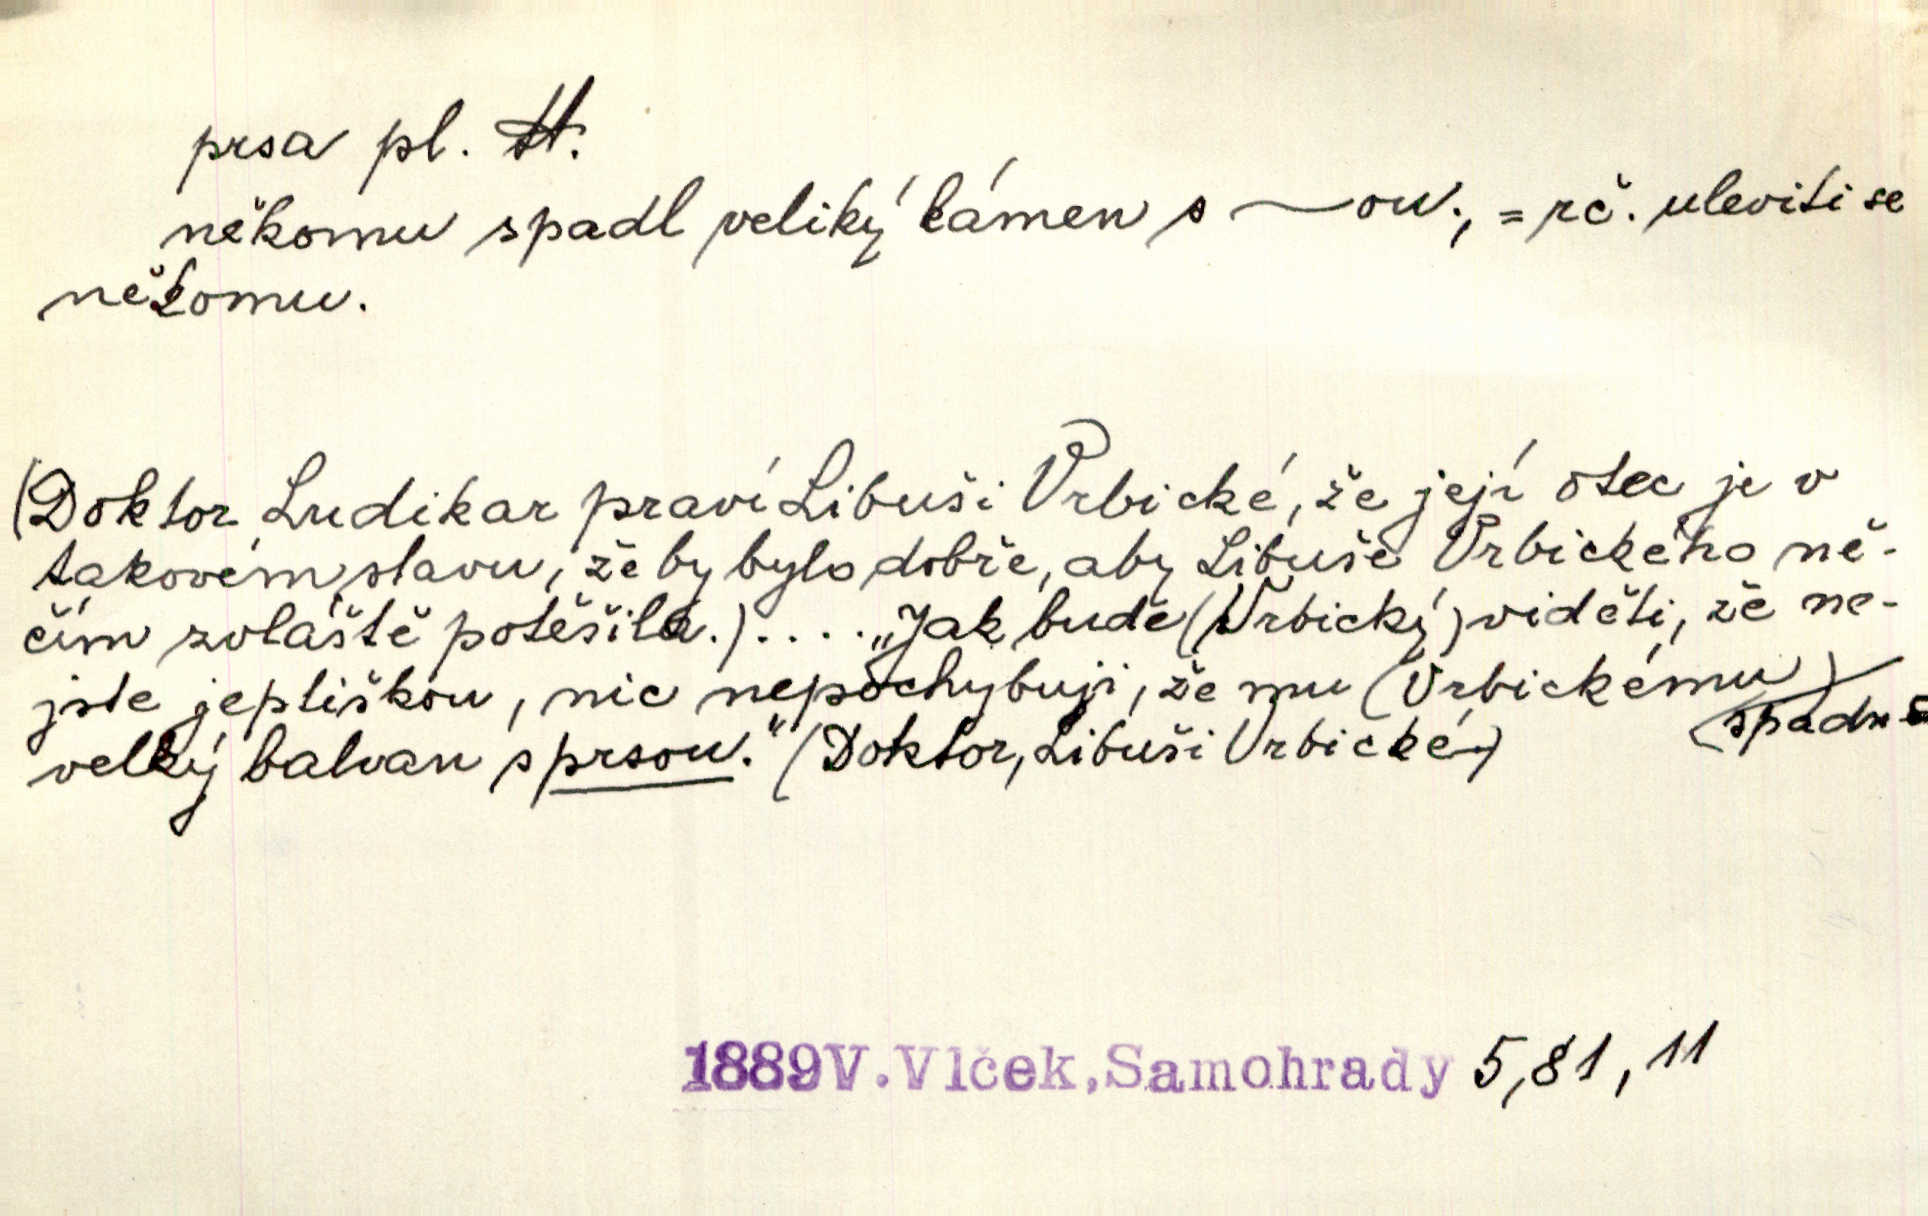 prsa pl.
někomu spadl veliký kámen s ~ou., = rč. uleviti se
někomu.
(Doktor Ludikar praví Libuši Vrbické, že její otec je v
takovém stavu, že by bylo dobře, aby Libuše Vrbického ně-
čím zvláště potěšila.).... „Jak bude (Vrbický) viděti, že ne-
jste jeptiškou, nic nepochybuji, že mu (Vrbickému)
spadne
velký balvan s prsou.“ (Doktor, Libuši Vrbické)
1889 V. Vlček, Samohrady 5,81,11